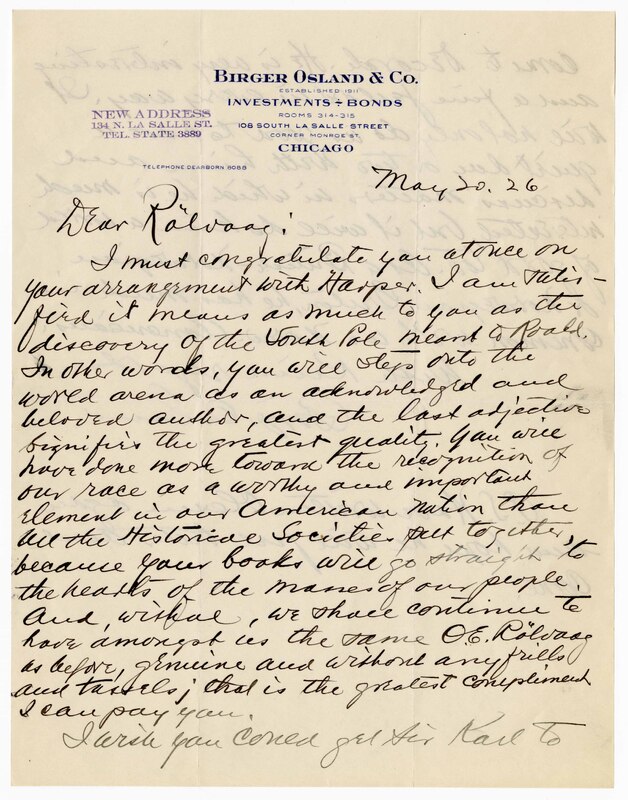 BIRGER OSLAND & CO.
ESTABLISHED 1911
INVESTMENTS ÷ BONDS
ROOMS 314-315
108 SOUTH LA SALLE STREET
CORNER MONROE ST.
CHICAGO
NEW ADDRESS
134 N. LA SALLE ST.
TEL. STATE 3889
TELEPHONE DEARBORN 6088
May 20. 26
Dear Rölvaag:
I must congratulate you at once on
your arrangement with Harper. I am satis-
fied it means as much to you as the
discovery of the South Pole meant to Roald.
In other words, you will step onto the
world arena as an acknowledged and
beloved author, and the last adjective
signifies the greatest quality. You will
have done more toward the recognition of
our race as a worthy and important
element in our American nation than
all the Historical Societies put together,
because your books will go straight to
the hearts of the masses of our people
And, withal, we shall continue to
have amongst us the same O.E. Rölvaag
as before, genuine and without any frills
and tassels; that is the greatest compliment
I can pay you.
I wish you could get Sir Karl to